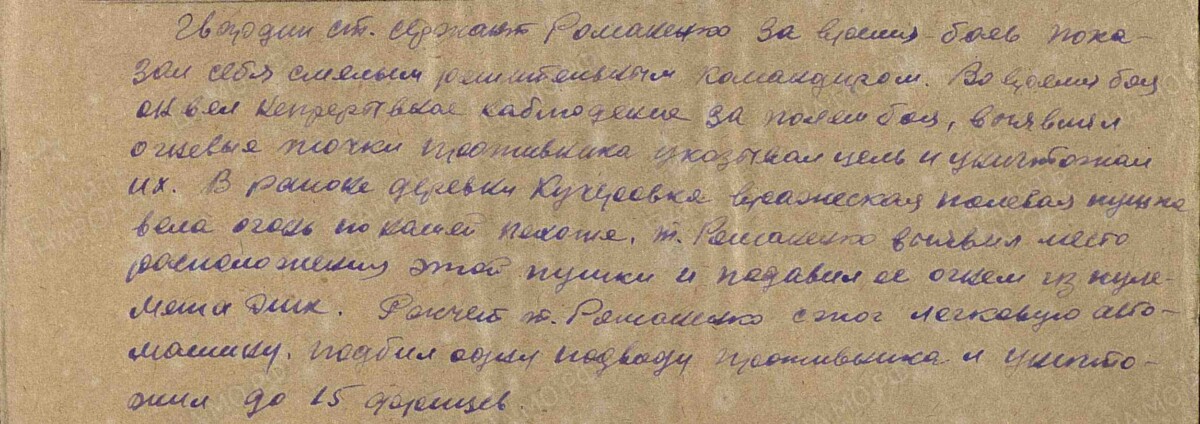 Гвардии ст. сержант Романенко за время боев пока-
зал себя смелым решительным командиром. Во время боя
он вел непрерывное наблюдение за полем боя, выявлял
огневые точки противника указывал цель и уничтожал
их. В районе деревни Кучеровка вражеская полевая пушка
вела огонь по нашей пехоте. т. Романенко выявил место
расположения этой пушки и подавил ее огнем из пуле-
мета ДШК. Расчет т. Романенко сжог легковую авто-
машину, подбил одну подводу противника и уничто-
жил до 15 фрицев.